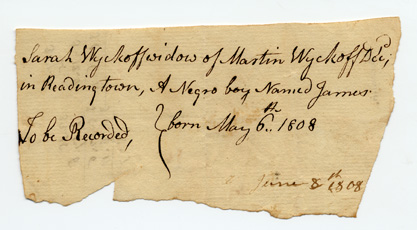 Sarah Wyckoff widow of Martin Wyckoff Decd;
in Readingtown, A Negro boy Named James
To be Recorded, born May 6th.. 1808
June 8th 1808